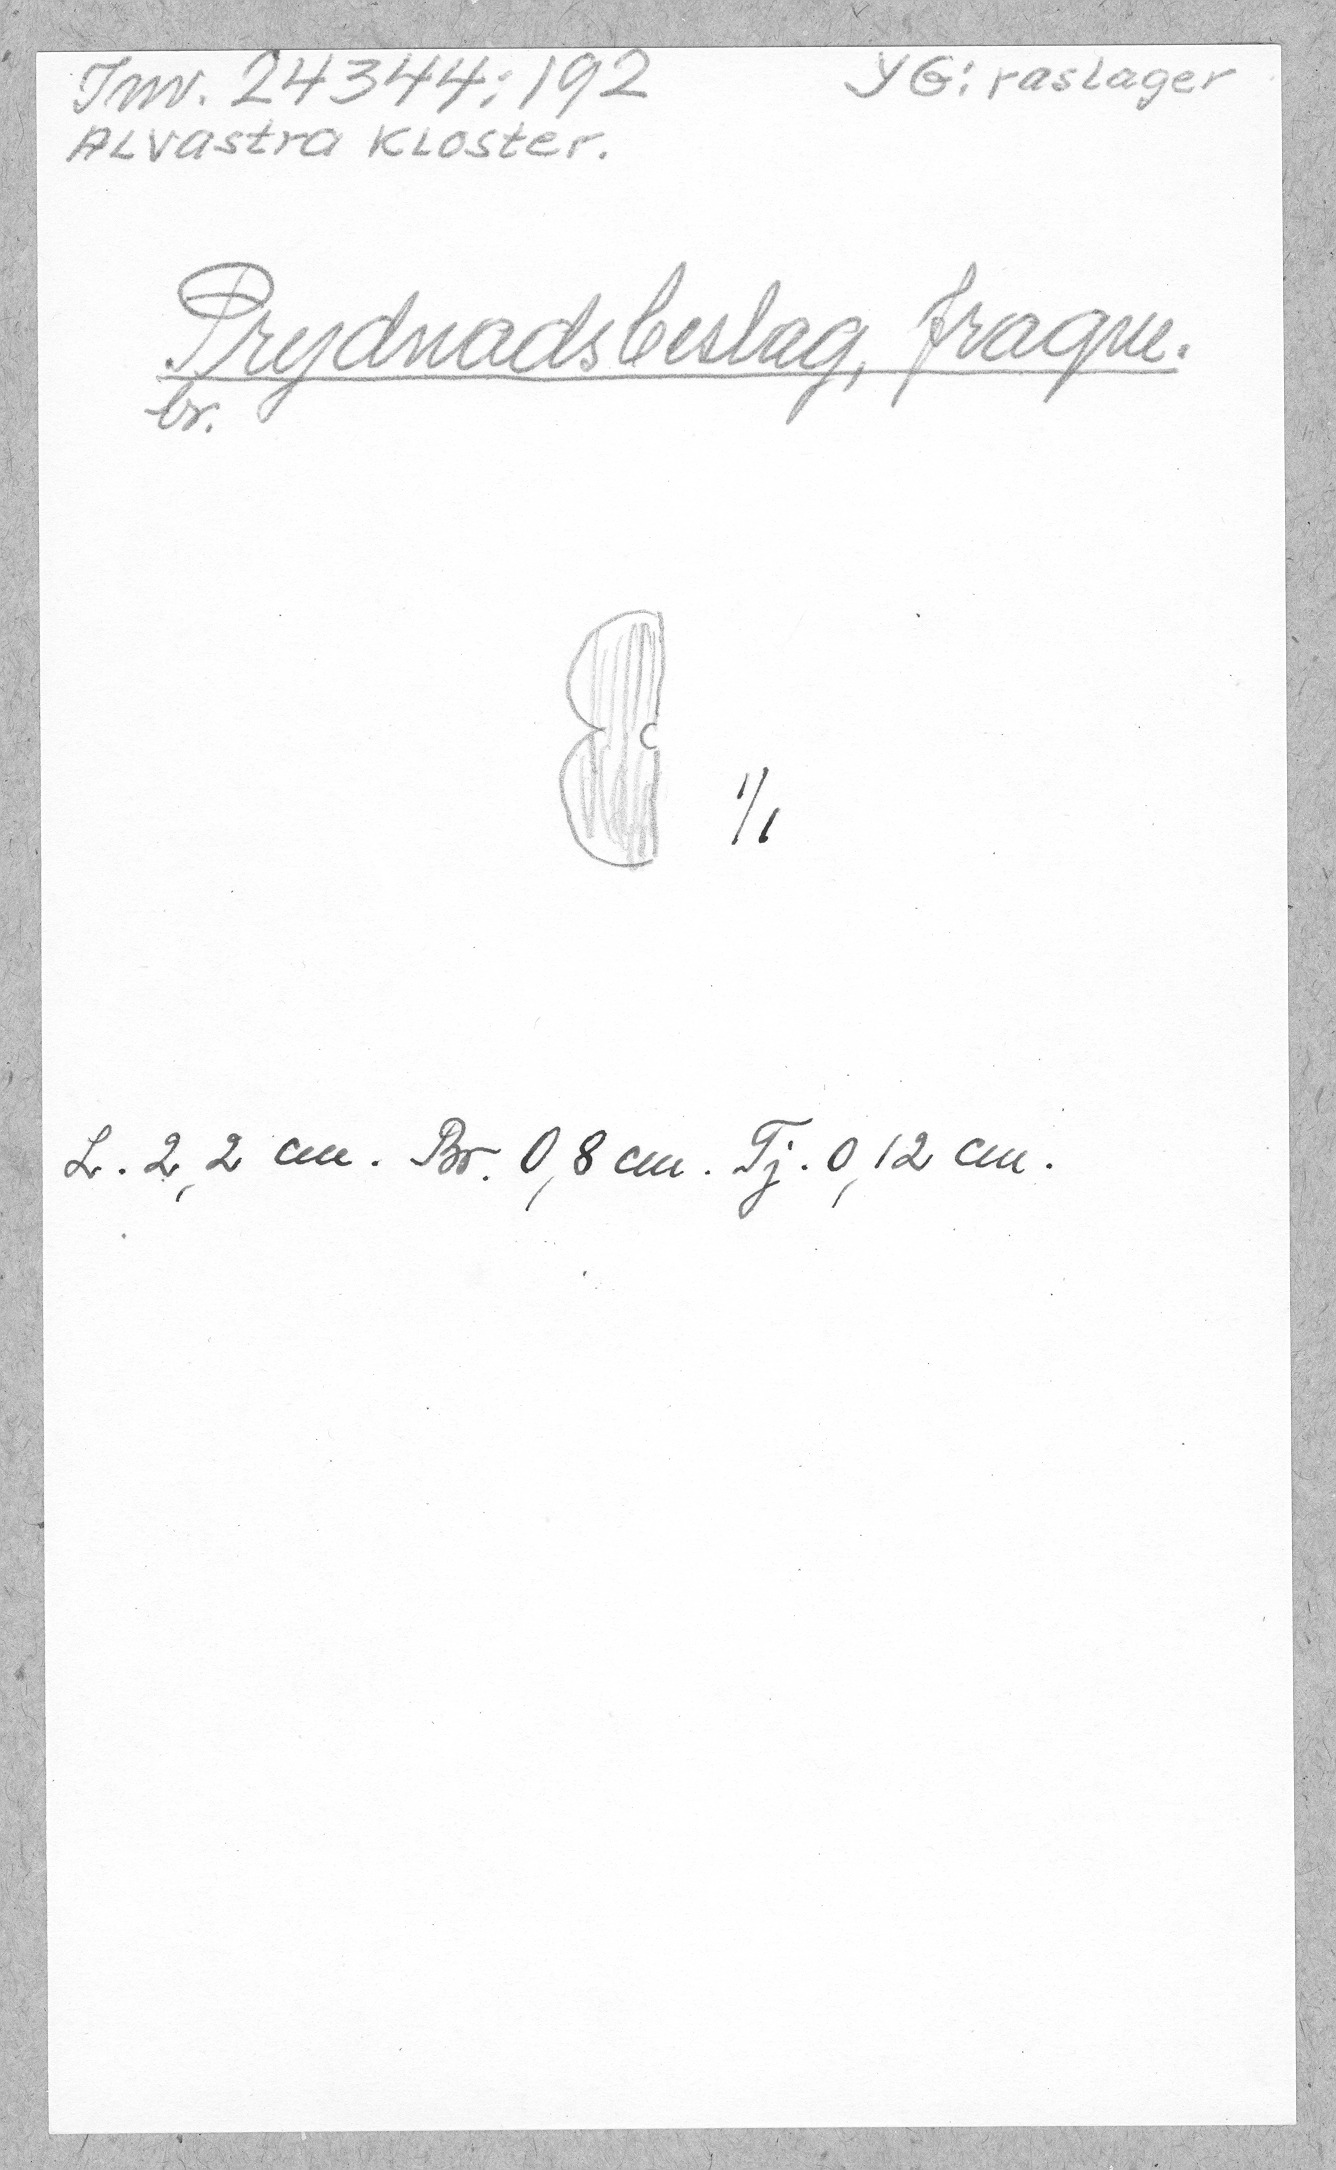 Inv. 24344:192
YG: raslager
Alvastra kloster.
Prydnadsbeslag, fragm.
br.
1/1
L. 2,2 cm. Br. 0,8 cm. Tj. 0,12 cm.